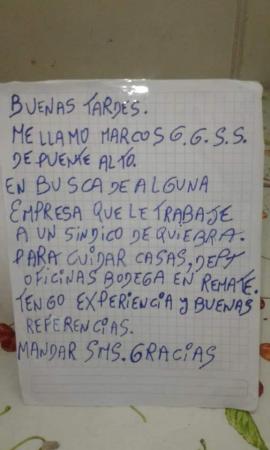 BUENAS TARDES.
ME LLAMO MARCOS G.G.S.S.
DE PUENTE ALTO.
EN BUSCA DE ALGUNA
EMPRESA QUE LE TRABAJE
A UN SINDICO DE QUIEBRA.
PARA CUIDAR CASAS, DEPT
OFICINAS BODEGA EN REMATE.
TENGO EXPERIENCIA Y BUENAS
REFERENCIAS.
MANDAR SMS. GRACIAS